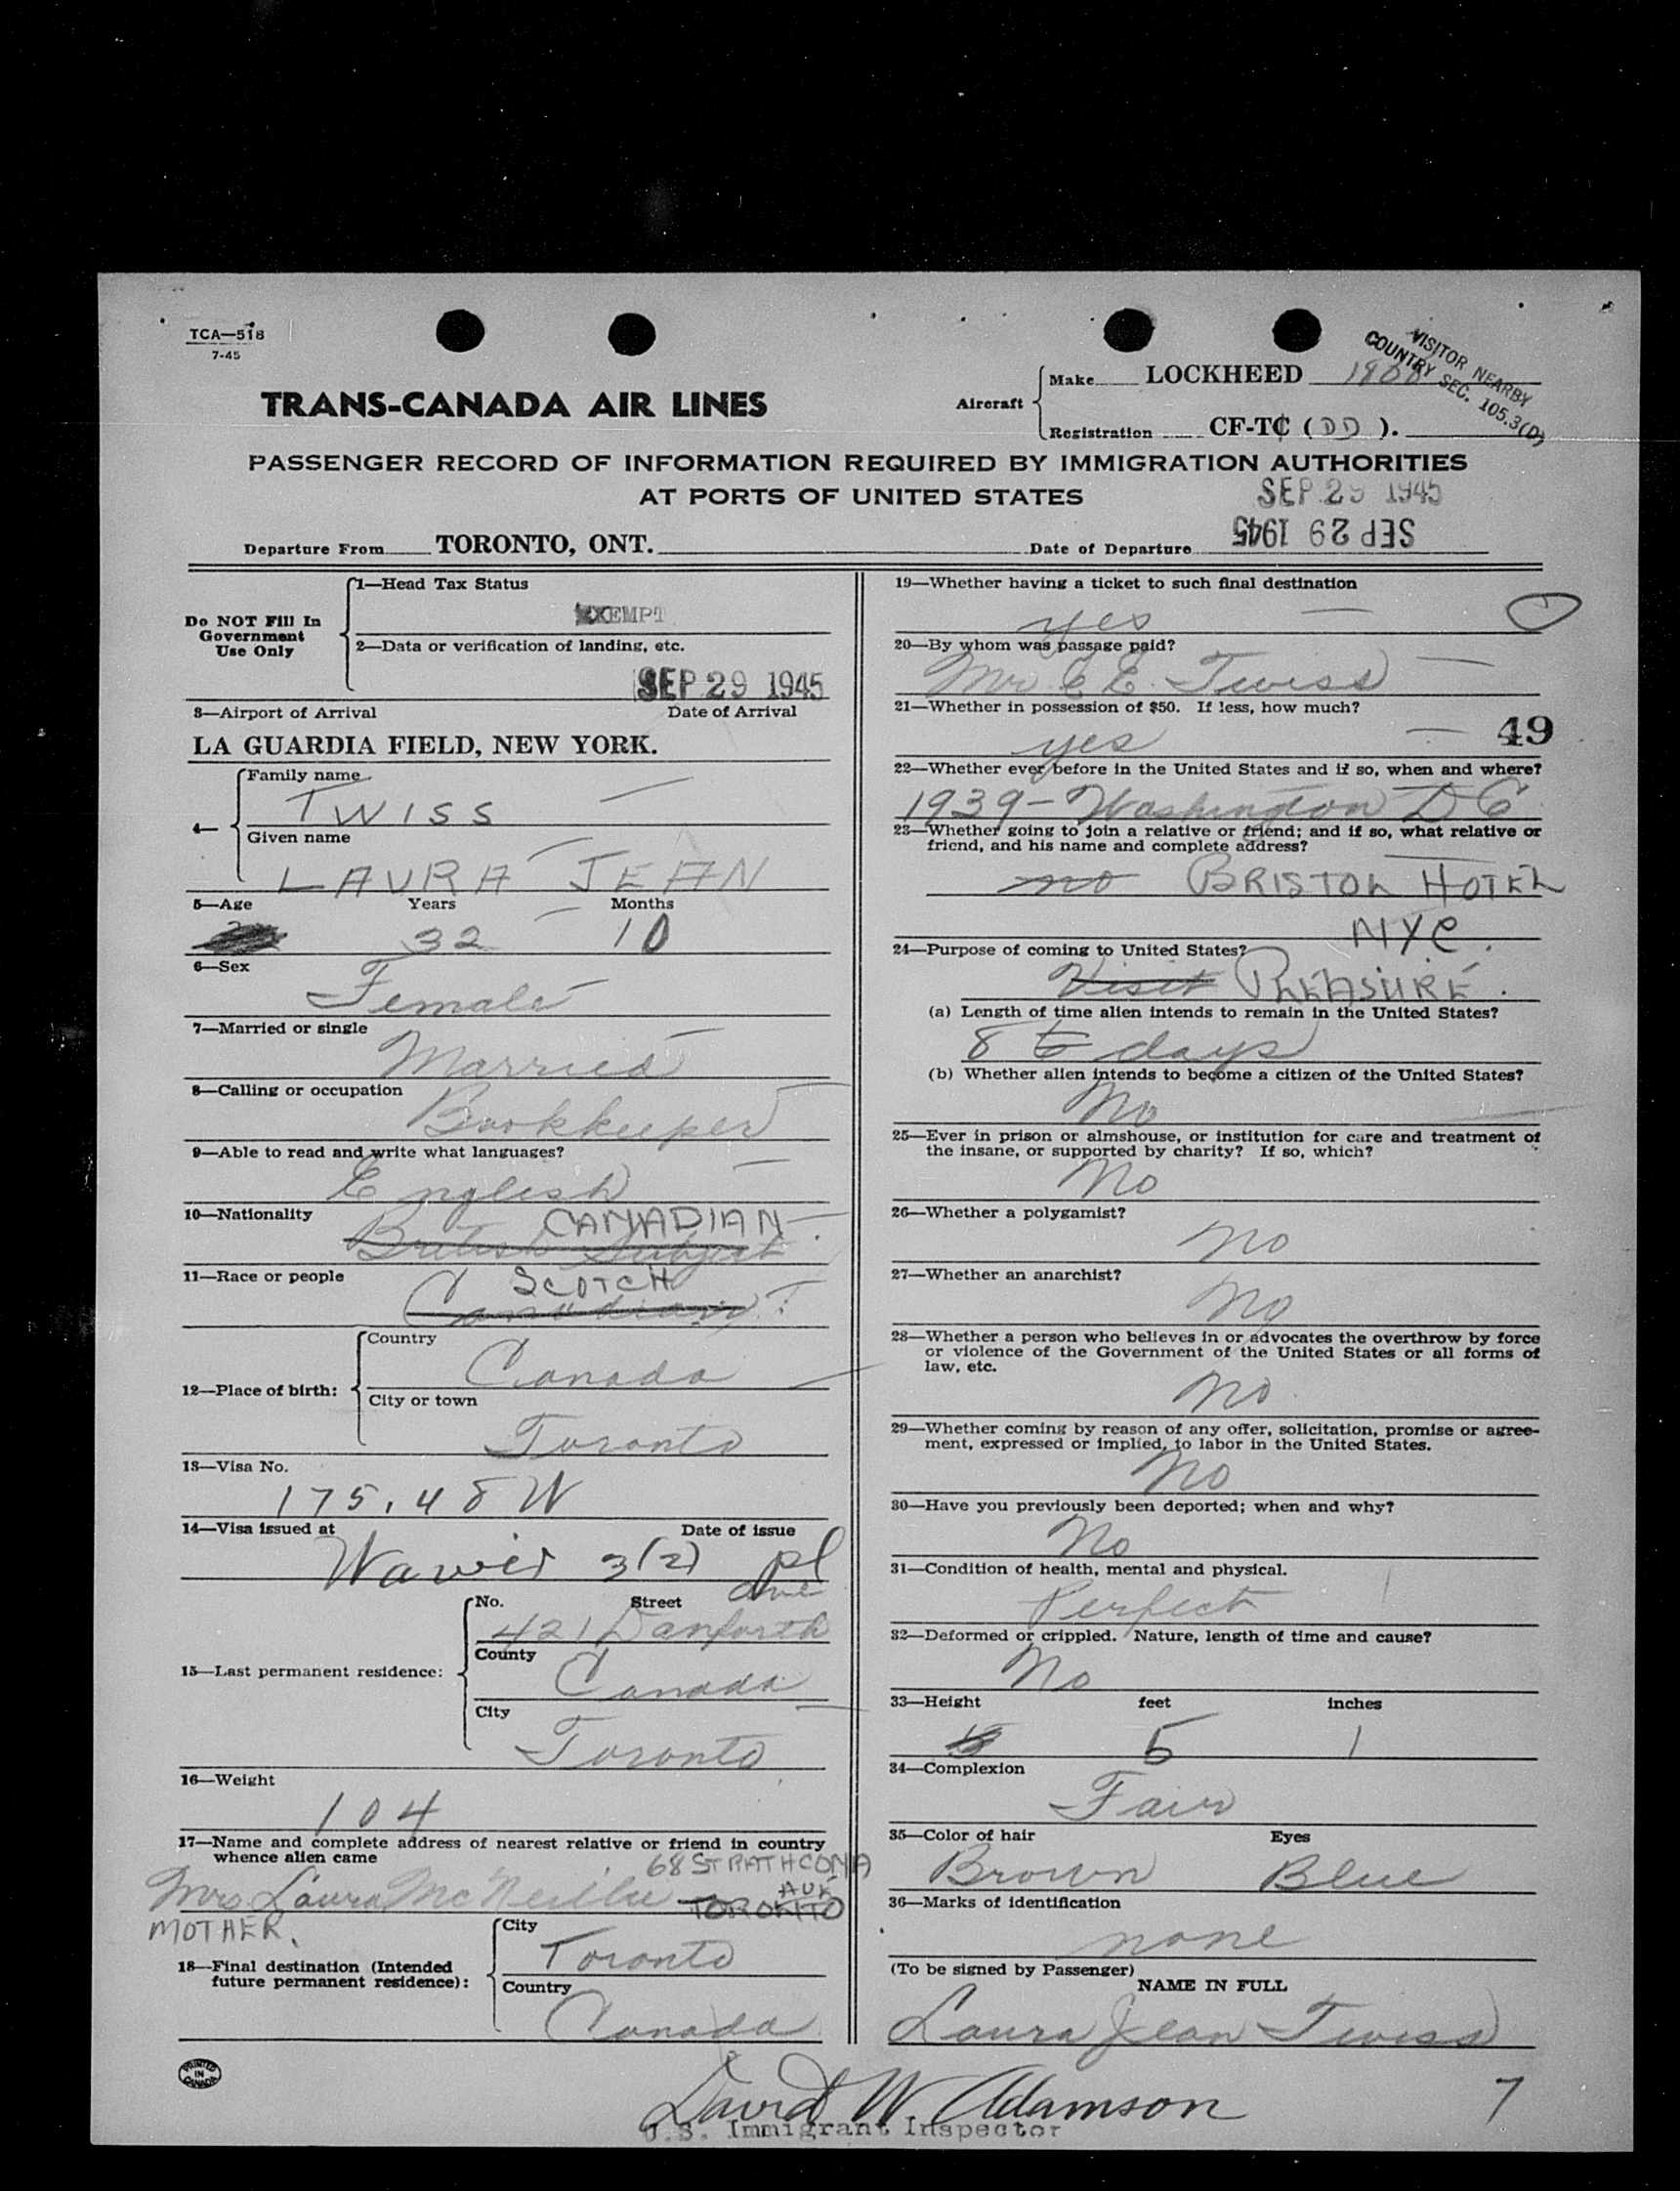 TCA—518
7-45
TRANS-CANADA AIR LINES
Aircraft
Make LOCKHEED 1808
Registration CF-TC (DD).
VISITOR NEARBY
COUNTRY SEC. 105.3(D)
PASSENGER RECORD OF INFORMATION REQUIRED BY IMMIGRATION AUTHORITIES
AT PORTS OF UNITED STATES
SEP 29 1945
Departure From TORONTO, ONT. Date of Departure SEP 29 1945
Do NOT Fill In
Government
Use Only
1—Head Tax Status
EXEMPT
2—Data or verification of landing, etc.
SEP 29 1945
3—Airport of Arrival Date of Arrival
LA GUARDIA FIELD, NEW YORK.
4—
Family name
TWISS
Given name
LAURA JEAN
5—Age Years Months
32 10
6—Sex
Female
7—Married or single
Married
8—Calling or occupation
Bookkeeper
9—Able to read and write what languages?
English
10—Nationality
CANADIAN
British Subject
11—Race or people
SCOTCH
Canadian
12—Place of birth:
Country
Canada
City or town
Toronto
13—Visa No.
175.48 W
14—Visa issued at Date of issue
3(2) pl
15—Last permanent residence:
No. Street
Ave
421 Danforth
County
Canada
City
Toronto
16—Weight
104
17—Name and complete address of nearest relative or friend in country
whence alien came
68 STRATHCONA
AVE
Mrs Laura McNeillie TORONTO
MOTHER.
18—Final destination (Intended
future permanent residence):
City
Toronto
Country
Canada
PRINTED
IN
CANADA
19—Whether having a ticket to such final destination
yes
20—By whom was passage paid?
Mr. E E. Twiss
21—Whether in possession of $50. If less, how much?
yes
49
22—Whether ever before in the United States and if so, when and where?
1939 - Washington D C
23—Whether going to join a relative or friend; and if so, what relative or
friend, and his name and complete address?
no BRISTOL HOTEL
NYC.
24—Purpose of coming to United States?
Visit PLEASURE.
(a) Length of time alien intends to remain in the United States?
8 6 days
(b) Whether alien intends to become a citizen of the United States?
No
25—Ever in prison or almshouse, or institution for care and treatment of
the insane, or supported by charity? If so, which?
No
26—Whether a polygamist?
no
27—Whether an anarchist?
no
28—Whether a person who believes in or advocates the overthrow by force
or violence of the Government of the United States or all forms of
law, etc.
no
29—Whether coming by reason of any offer, solicitation, promise or agree-
ment, expressed or implied, to labor in the United States.
no
30—Have you previously been deported; when and why?
No
31—Condition of health, mental and physical.
Perfect
32—Deformed or crippled. Nature, length of time and cause?
No
33—Height feet inches
5 1
34—Complexion
Fair
35—Color of hair Eyes
Brown Blue
36—Marks of identification
none
(To be signed by Passenger)
NAME IN FULL
Laura Jean Twiss
David W. Adamson
U.S. Immigrant Inspector
7